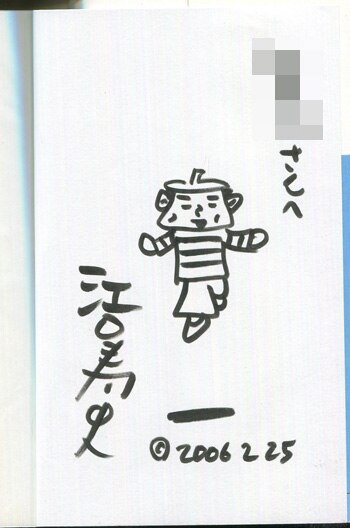 さんへ
江口寿史
©2006 2 25